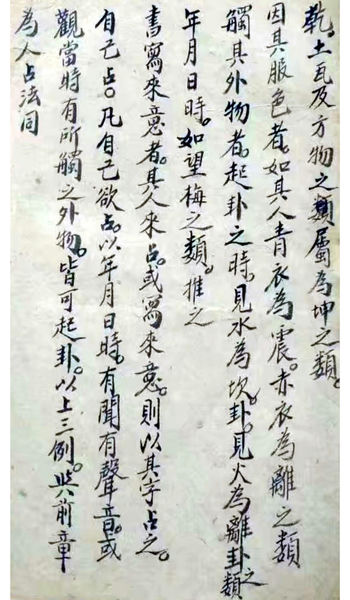 乾。土瓦及方物之類屬為坤之類。
因其服色者。如其人青衣為震。赤衣為離之類
觸其外物者。起卦之時。見水為坎卦。見火為離卦之類
年月日時。如望梅之類。推之
書寫來意者。其人來占。或寫來意。則以其字占之。
自己占。凡自己欲占。以年月日時。有聞有聲音。或
觀當時有所觸之外物。皆可起卦。以上三例。與前章
為人占法同